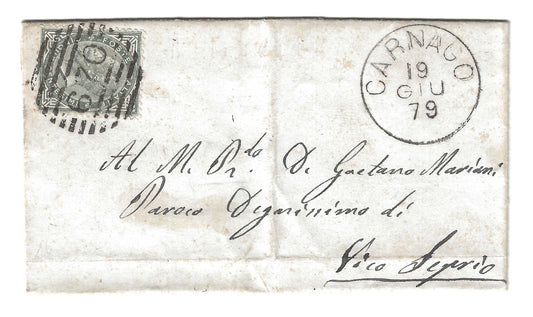 CARNAGO
19
GIU
79
Al M. Rdo. De Gaetano Mariani
Paroco Degnissimo di
Vico Seprio